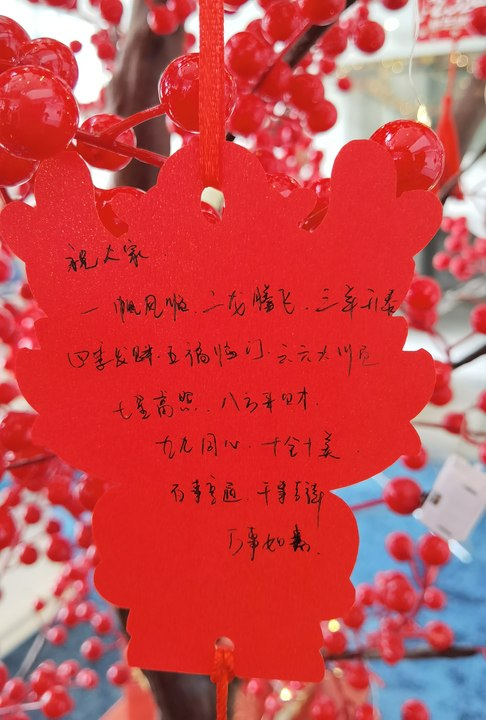 祝大家
一帆风顺、二龙腾飞、三羊开泰
四季发财、五福临门、六六大顺
七星高照、八方来财、
九九同心、十全十美、
百事亨通、千事吉祥
万事如意.